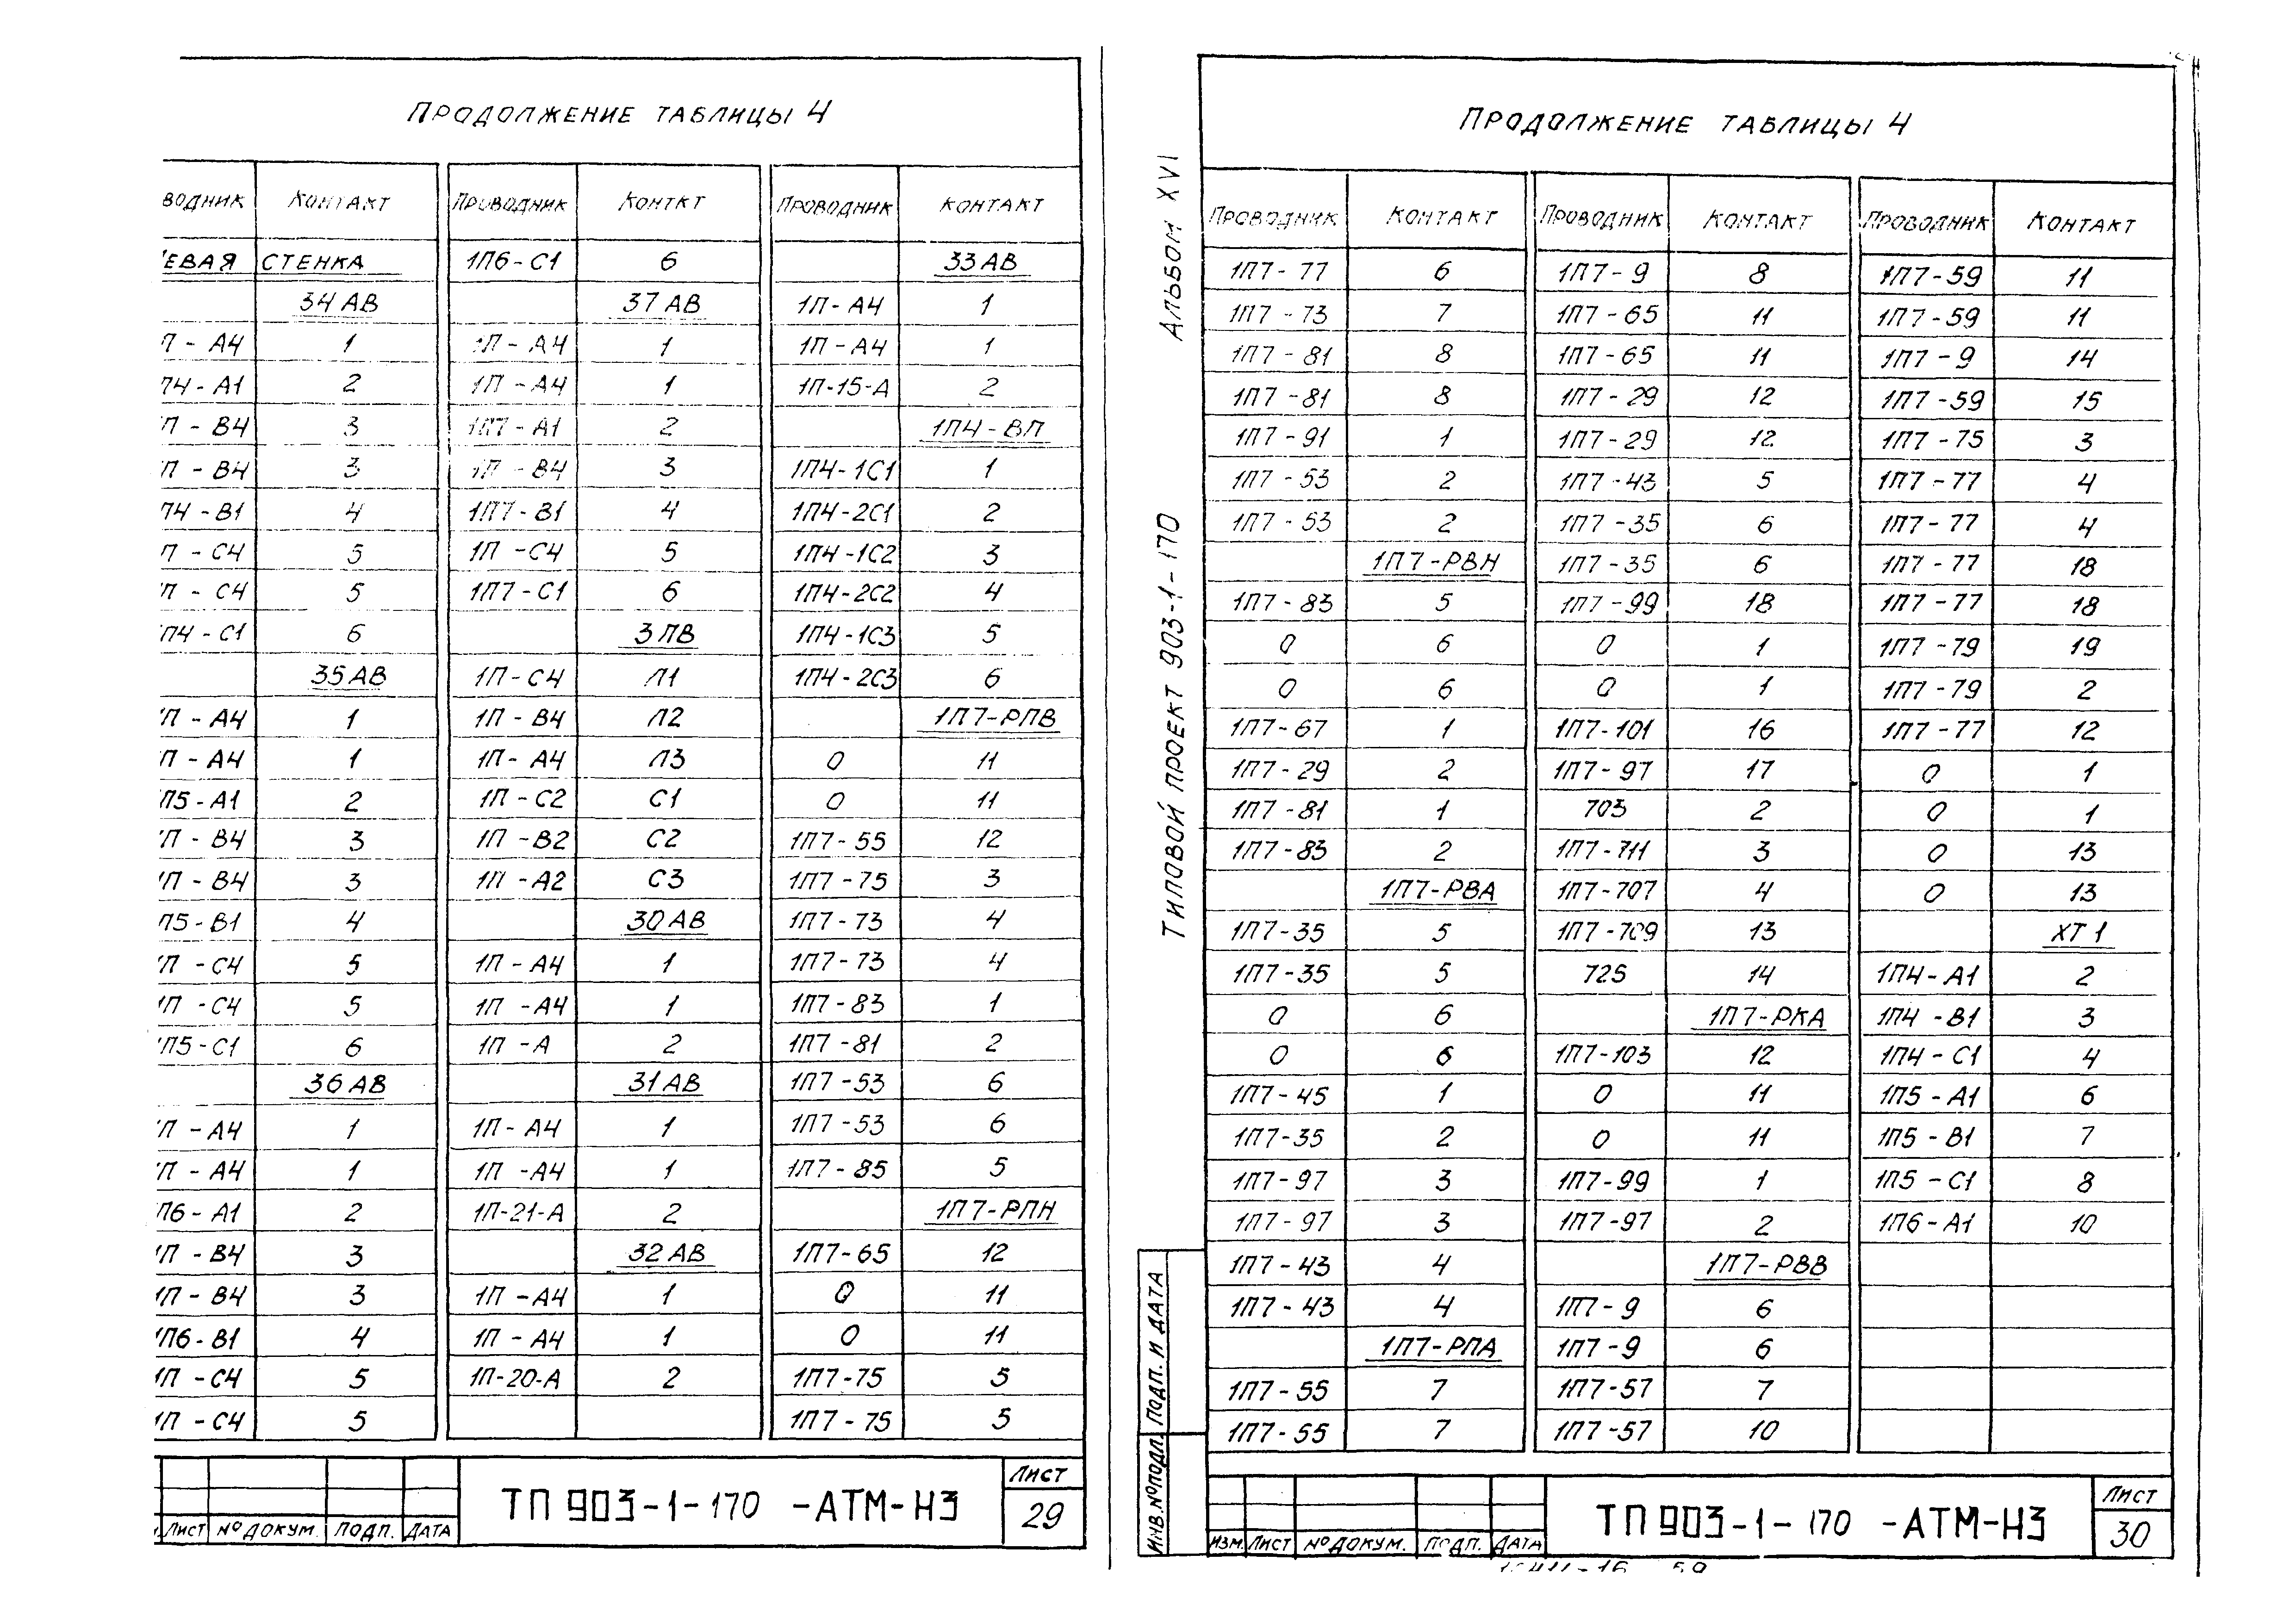 ПРОДОЛЖЕНИЕ ТАБЛИЦЫ 4
ВОДНИК КОНТАКТ ПРОВОДНИК КОНТКТ ПРОВОДНИК КОНТАКТ
ЕВАЯ СТЕНКА 1П6-С1 6 33АВ
34АВ 37АВ 1П-А4 1
П-А4 1 1П-А4 1 1П-А4 1
П4-А1 2 1П-А4 1 1П-15-А 2
П-В4 3 1П7-А1 2 1П4-ВП
П-В4 3 1П-В4 3 1П4-1С1 1
П4-В1 4 1П7-В1 4 1П4-2С1 2
П-С4 5 1П-С4 5 1П4-1С2 3
П-С4 5 1П7-С1 6 1П4-2С2 4
П4-С1 6 3ЛВ 1П4-1С3 5
35АВ 1П-С4 Л1 1П4-2С3 6
1П-А4 1 1П-В4 Л2 1П7-РПВ
П-А4 1 1П-А4 Л3 0 11
П5-А1 2 1П-С2 С1 0 11
1П-В4 3 1П-В2 С2 1П7-55 12
1П-В4 3 1П-А2 С3 1П7-75 3
П5-В1 4 30АВ 1П7-73 4
1П-С4 5 1П-А4 1 1П7-73 4
1П-С4 5 1П-А4 1 1П7-83 1
1П5-С1 6 1П-А 2 1П7-81 2
36АВ 31АВ 1П7-53 6
1П-А4 1 1П-А4 1 1П7-53 6
1П-А4 1 1П-А4 1 1П7-85 5
П6-А1 2 1П-21-А 2 1П7-РПН
1П-В4 3 32АВ 1П7-65 12
1П-В4 3 1П-А4 1 0 11
1П6-В1 4 1П-А4 1 0 11
1П-С4 5 1П-20-А 2 1П7-75 5
1П-С4 5 1П7-75 5
ЛИСТ № ДОКУМ. ПОДП. ДАТА
ТП 903-1-170 -АТМ-Н3
ЛИСТ
29
АЛЬБОМ XVI
ТИПОВОЙ ПРОЕКТ 903-1-170
ПОДП. И ДАТА
ИНВ.№ПОДЛ.
ПРОДОЛЖЕНИЕ ТАБЛИЦЫ 4
ПРОВОДНИК КОНТАКТ ПРОВОДНИК КОНТАКТ ПРОВОДНИК КОНТАКТ
1П7-77 6 1П7-9 8 1П7-59 11
1П7-73 7 1П7-65 11 1П7-59 11
1П7-81 8 1П7-65 11 1П7-9 14
1П7-81 8 1П7-29 12 1П7-59 15
1П7-91 1 1П7-29 12 1П7-75 3
1П7-53 2 1П7-43 5 1П7-77 4
1П7-53 2 1П7-35 6 1П7-77 4
1П7-РВН 1П7-35 6 1П7-77 18
1П7-83 5 1П7-99 18 1П7-77 18
0 6 0 1 1П7-79 19
0 6 0 1 1П7-79 2
1П7-67 1 1П7-101 16 1П7-77 12
1П7-29 2 1П7-97 17 0 1
1П7-81 1 703 2 0 1
1П7-83 2 1П7-711 3 0 13
1П7-РВА 1П7-707 4 0 13
1П7-35 5 1П7-709 13 ХТ1
1П7-35 5 725 14 1П4-А1 2
0 6 1П7-РКА 1П4-В1 3
0 6 1П7-103 12 1П4-С1 4
1П7-45 1 0 11 1П5-А1 6
1П7-35 2 0 11 1П5-В1 7
1П7-97 3 1П7-99 1 1П5-С1 8
1П7-97 3 1П7-97 2 1П6-А1 10
1П7-43 4 1П7-РВВ
1П7-43 4 1П7-9 6
1П7-РПА 1П7-9 6
1П7-55 7 1П7-57 7
1П7-55 7 1П7-57 10
ИЗМ. ЛИСТ № ДОКУМ. ПОДП. ДАТА
ТП 903-1-170 -АТМ-Н3
ЛИСТ
30